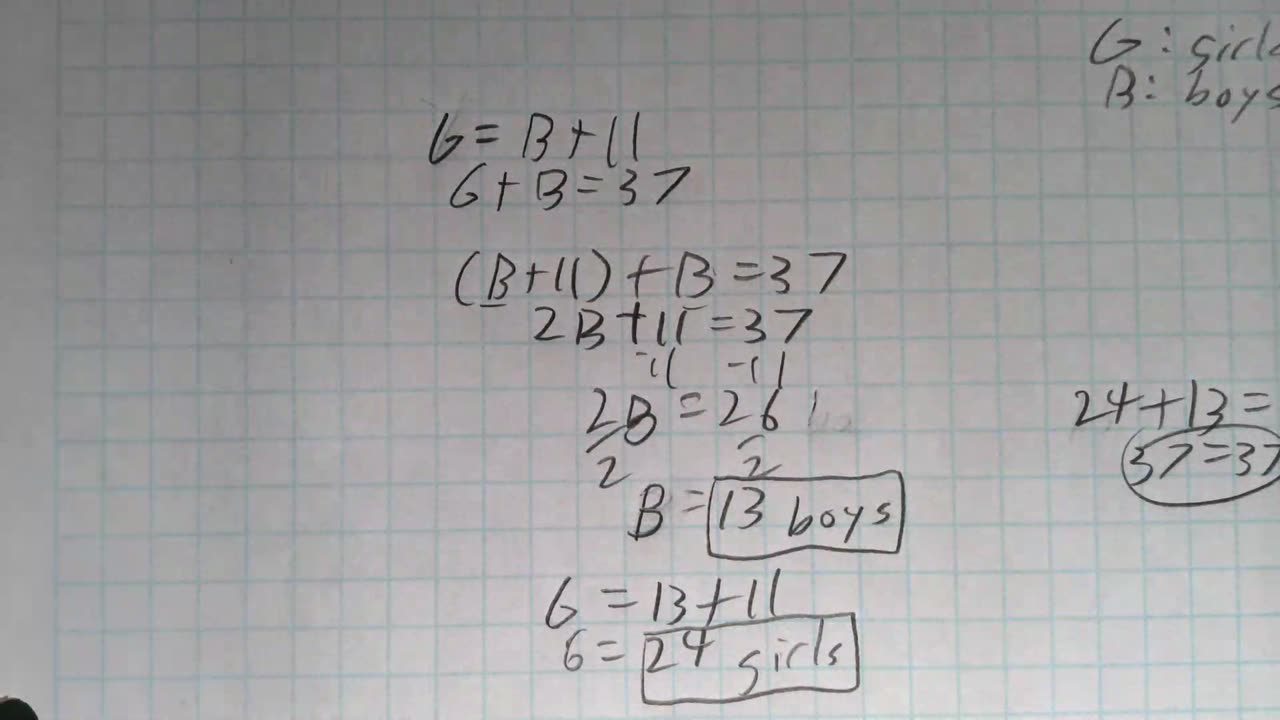 G: girls
B: boys
G = B + 11
G + B = 37
(B + 11) + B = 37
2B + 11 = 37
-11 -11
2B = 26
2 2
B = 13 boys
G = 13 + 11
G = 24 girls
24 + 13 =
37 = 37